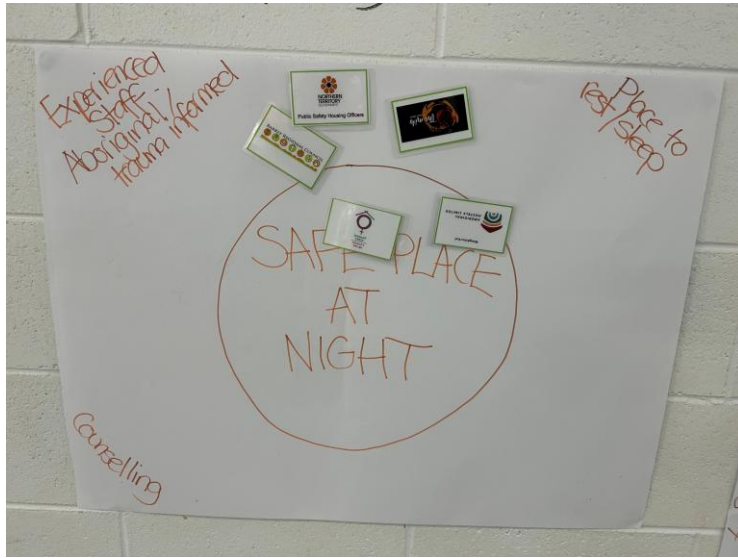 Experienced
Staff -
Aboriginal /
trauma informed
NORTHERN
TERRITORY
GOVERNMENT
Public Safety Housing Officers
Place to
rest/sleep
SAFE PLACE
AT
NIGHT
Counselling